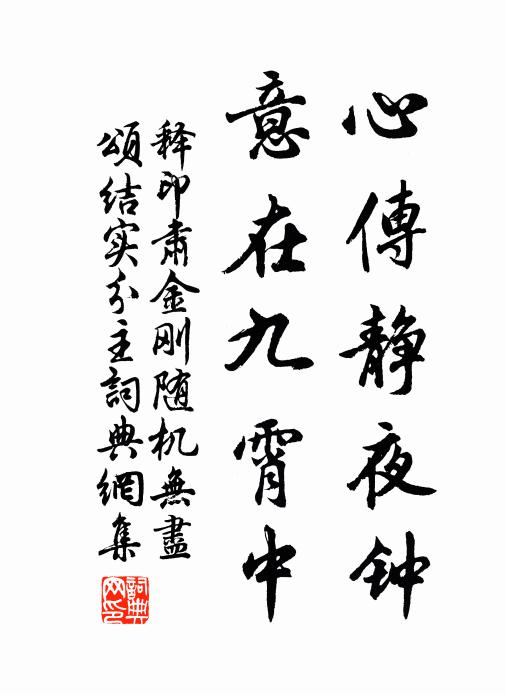 心傳靜夜钟
意在九霄中
释印肅金刚随机無盡
頌结实分主詞典網集
詞典網印